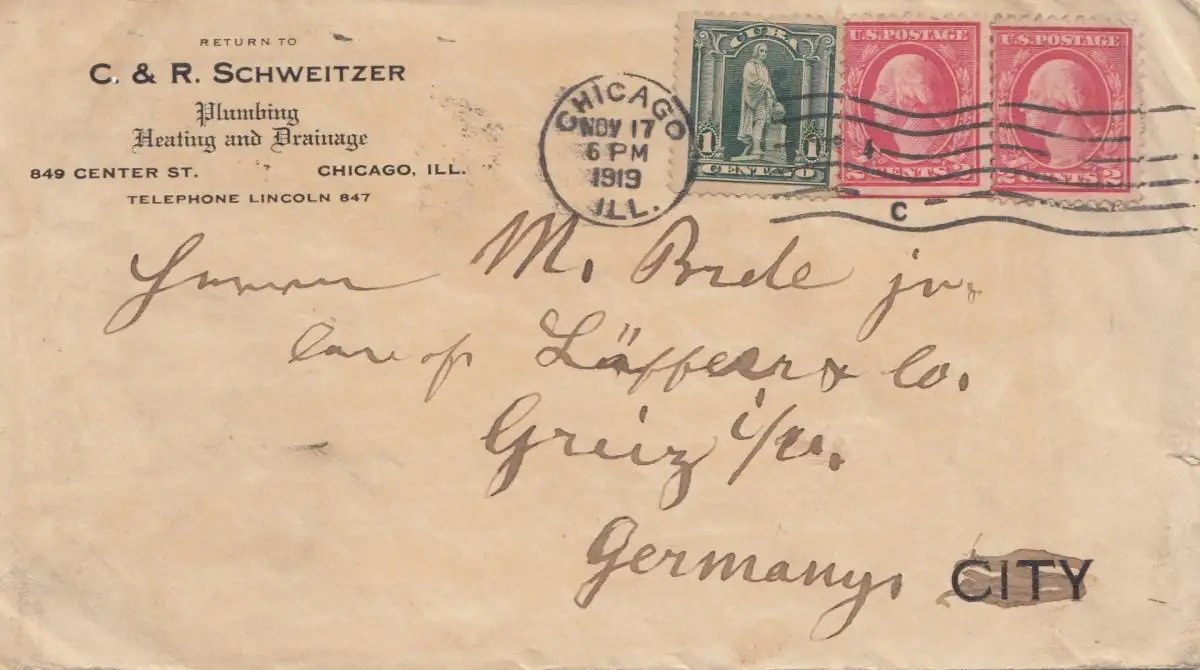 RETURN TO
C. & R. SCHWEITZER
Plumbing
Heating and Drainage
849 CENTER ST. CHICAGO, ILL.
TELEPHONE LINCOLN 847
CHICAGO
NOV 17
6 PM
1919
ILL.
CUBA
1 1
CENTAVO
U.S. POSTAGE
2 CENTS 2
U.S. POSTAGE
2 CENTS 2
C
Herrn M. Brde jr.
Care of Läffeer & Co.
Greiz i/V.
Germany.
CITY